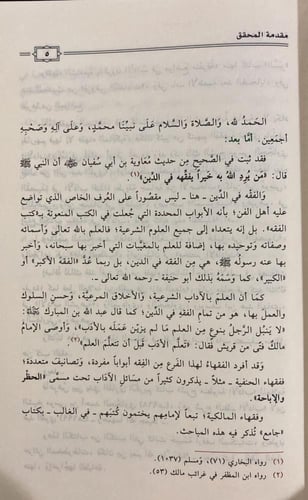 مقدمة المحقق
٥
الحَمدُ لله، والصَّلاة والسَّلام عَلَى نبيِّنا محمَّدٍ، وعَلى آلِهِ وَصَحْبِهِ
أجمَعِين. أمَّا بعد:
فقد ثبت في الصَّحيح مِن حديث مُعَاوية بن أبي سفيان ﷺ أن النبي ﷺ
قال: «مَن يُرِدِ اللهُ به خَيراً يفقِّهه في الدِّين»(١).
والفقه في الدِّين - هنا - ليس مقصُوراً على العرف الخاص الذي تواضع
عليه أهل الفن؛ بأنه الأبواب المحددة التي جُعلت في الكتب المنعوتة بـ«كتب
الفقه»، بل إنه يتعداه إلى جميع العلوم الشرعية؛ فالعلم بالله تعالى وأسمائه
وصفاته وتوحيده بها، إضافة للعلم بالمغيَّبات التي أخبر بها سبحانه، وأخبر
بها عنه رسولُه ﷺ، هي مِن الفقه في الدين، بل ربما عُدَّ «الفقه الأكبر» أو
«الكبير»، كما وَسَمَهُ بذلك أبو حنيفة - رحمه الله تعالى -.
كمَا أن العلمَ بالآداب الشرعية، والأخلاق المرعيَّة، وحسنِ السلوك
والعملَ بها، هو من تمام الفقهِ في الدين، وكما قال عبد الله بن المبارك
«لا يَنبُل الرَّجلُ بنوعٍ مِن العلم ما لم يزيِّن عملَه بالأدَب»، وأوصَى الإمامُ
مالكٌ فتًى من قريش فقال: «تعلَّم الأدَب قبلَ أن تتعلَّم العلم»(٢).
وقد أفرد الفقهاءُ لهذا الفَرع مِن الفقه أبواباً مفردة، وتصانيفَ متعددة؛
ففقهاء الحنفية - مثلاً - يذكرون كثيراً من مسائل الآداب تحت مسمَّى «الحظْر
والإباحة».
وفقهاء المالكية؛ تبعاً لإمامِهم يختمون كُتبَهم - في الغالب - بكتاب
«جامع» تُذكر فيه هذه المباحث.
(١) رواه البخاري (٧١)، ومسلم (١٠٣٧).
(٢) رواه ابن المظفر في غرائب مالك (٥٣).